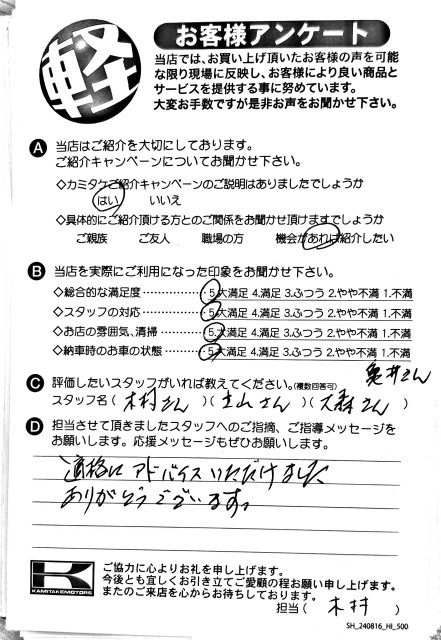 軽
お客様アンケート
当店では、お買い上げ頂いたお客様の声を可能
な限り現場に反映し、お客様により良い商品と
サービスを提供する事に努めています。
大変お手数ですが是非お声をお聞かせ下さい。
A 当店はご紹介を大切にしております。
ご紹介キャンペーンについてお聞かせ下さい。
◇カミタケご紹介キャンペーンのご説明はありましたでしょうか
はい いいえ
◇具体的にご紹介頂ける方とのご関係をお聞かせ頂けますでしょうか
ご親族 ご友人 職場の方 機会があれば紹介したい
B 当店を実際にご利用になった印象をお聞かせ下さい。
◇総合的な満足度 5.大満足 4.満足 3.ふつう 2.やや不満 1.不満
◇スタッフの対応 5.大満足 4.満足 3.ふつう 2.やや不満 1.不満
◇お店の雰囲気、清掃 5.大満足 4.満足 3.ふつう 2.やや不満 1.不満
◇納車時のお車の状態 5.大満足 4.満足 3.ふつう 2.やや不満 1.不満
亀井さん
C 評価したいスタッフがいれば教えてください。(複数回答可)
スタッフ名(木村さん)(土山さん)(大森さん)
D 担当させて頂きましたスタッフへのご指摘、ご指導メッセージを
お願いします。応援メッセージもぜひお願いします。
適格に アドバイスいただけました
ありがとうございますっ
K
KAMITAKEMOTORS
ご協力に心よりお礼を申し上げます。
今後とも宜しくお引き立てご愛顧の程お願い申し上げます。
またのご来店を心からお待ちしております。
担当(木村)
SH_240816_HI_500